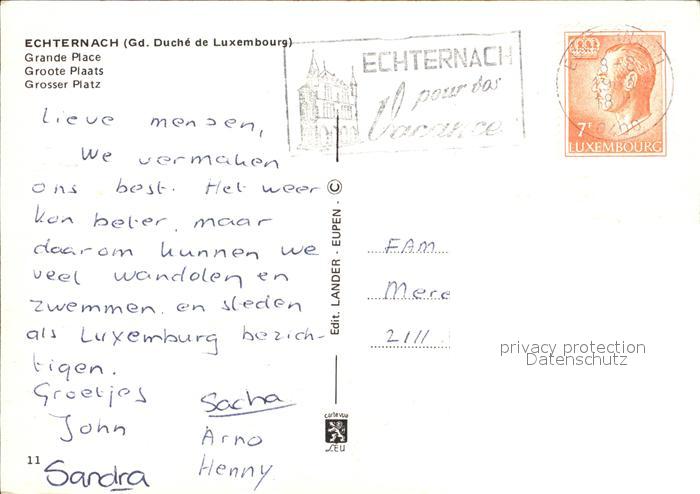 ECHTERNACH (Gd. Duché de Luxembourg)
Grande Place
Groote Plaats
Grosser Platz
ECHTERNACH
pour vos
Vacances
7F
LUXEMBOURG
Lieve mensen,
We vermaken
ons best. Het weer
kon beter, maar
daarom kunnen we
veel wandelen en
zwemmen en steden
als Luxemburg bezich-
tigen.
Groetjes
John
Sandra
Sacha
Arno
Henny
Edit. LANDER - EUPEN - ©
FAM
Mere
2111
privacy protection
Datenschutz
cartevue
LEU
11